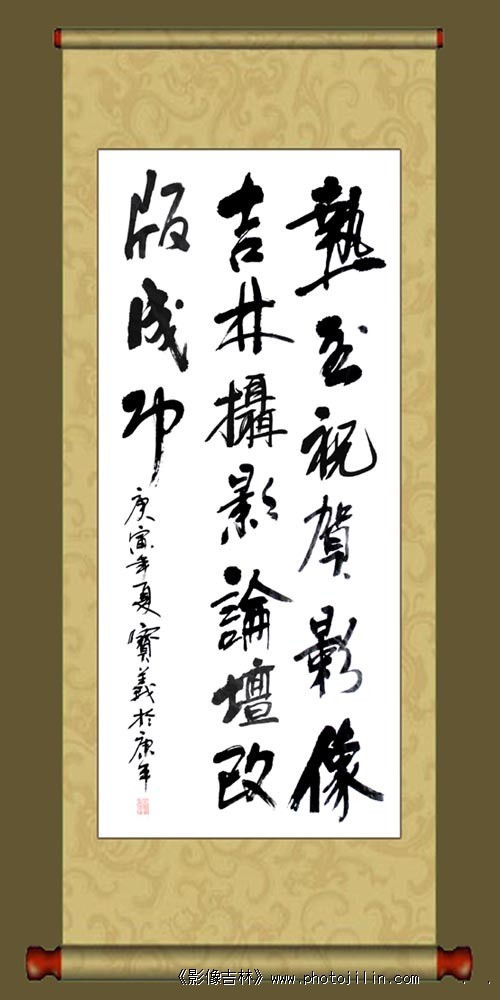 熱烈祝賀影像
吉林攝影論壇改
版成功
庚寅年夏寶義於年
《影像吉林》www.photojilin.com